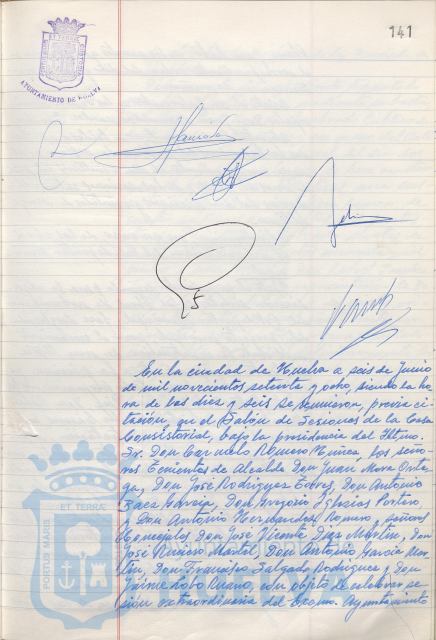 141
ET TERRAE
PORTUS MARIS
CUSTODIA
AYUNTAMIENTO DE HUELVA
En la ciudad de Huelva a seis de Junio
de mil novecientos setenta y ocho, siendo la ho
ra de las diez y seis se reunieron, previa ci
tación, en el Salón de Sesiones de la Casa
Consistorial, bajo la presidencia del Iltmo.
Sr. Don Carmelo Romero Núñez, los seño
res Tenientes de Alcalde Don Juan Mora Orte
ga, Don José Rodríguez Torres, Don Antonio
Baez García, Don Gregorio Iglesias Portero
y Don Antonio Hernández Romero, señores
Concejales Don José Vicente Díaz Martín, Don
José Martel, Don Antonio García Mar
tín, Don Francisco Salgado Rodríguez y Don
Jaime Lobo, con objeto de celebrar se
sión extraordinaria del Excmo. Ayuntamiento
ET TERRAE
PORTUS MARIS